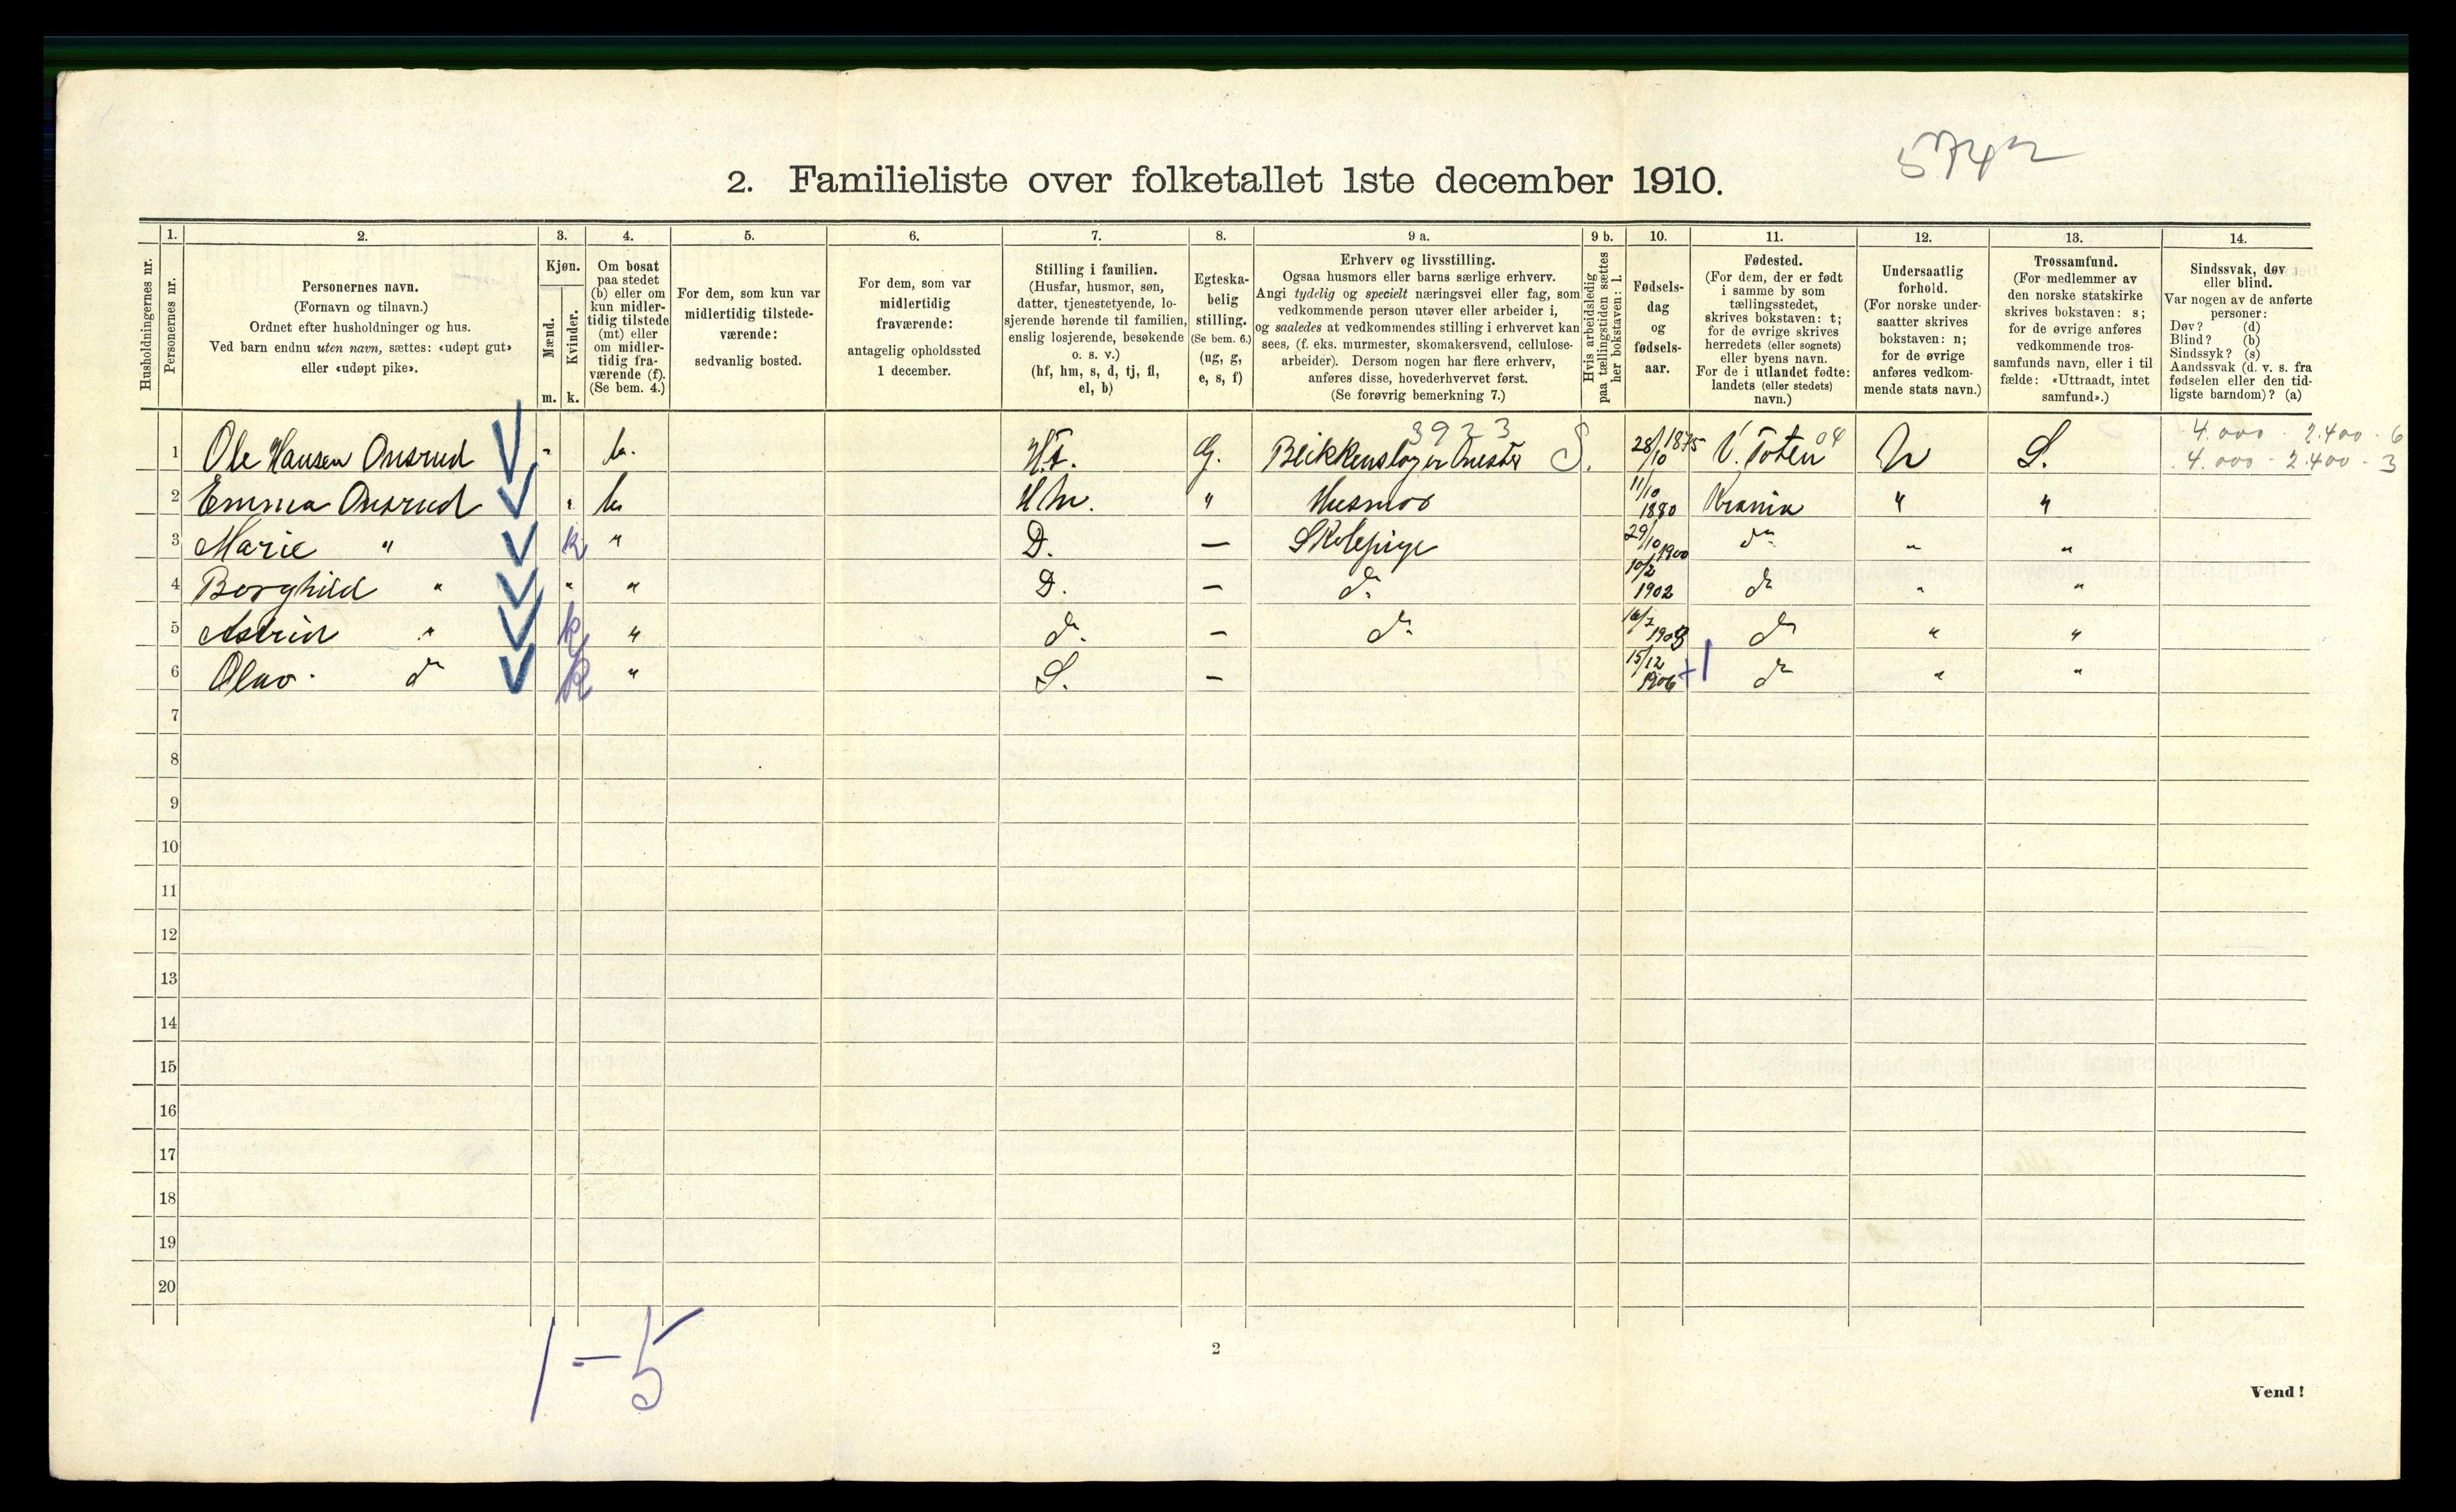 5742
2. Familieliste over folketallet 1ste december 1910.
1. 2. 3. 4. 5. 6. 7. 8. 9 a. 9 b. 10. 11. 12. 13. 14.
Husholdningernes nr.
Personernes nr.
Personernes navn.
(Fornavn og tilnavn.)
Ordnet efter husholdninger og hus.
Ved barn endnu uten navn, sættes: «udøpt gut»
eller «udøpt pike».
Kjøn.
Mænd.
Kvinder.
m. k.
Om bosat
paa stedet
(b) eller om
kun midler-
tidig tilstede
(mt) eller
om midler-
tidig fra-
værende (f).
(Se bem. 4.)
For dem, som kun var
midlertidig tilstede-
værende:
sedvanlig bosted.
For dem, som var
midlertidig
fraværende:
antagelig opholdssted
1 december.
Stilling i familien.
(Husfar, husmor, søn,
datter, tjenestetyende, lo-
sjerende hørende til familien,
enslig losjerende, besøkende
o. s. v.)
(hf, hm, s, d, tj, fl,
el, b)
Egteska-
belig
stilling.
(Se bem. 6.)
(ug, g,
e, s, f)
Erhverv og livsstilling.
Ogsaa husmors eller barns særlige erhverv.
Angi tydelig og specielt næringsvei eller fag, som
vedkommende person utøver eller arbeider i,
og saaledes at vedkommendes stilling i erhvervet kan
sees, (f. eks. murmester, skomakersvend, cellulose-
arbeider). Dersom nogen har flere erhverv,
anføres disse, hovederhvervet først.
(Se forøvrig bemerkning 7.)
Hvis arbeidsledig
paa tællingstiden sættes
her bokstaven: l.
Fødsels-
dag
og
fødsels-
aar.
Fødested.
(For dem, der er født
i samme by som
tællingsstedet,
skrives bokstaven: t;
for de øvrige skrives
herredets (eller sognets)
eller byens navn.
For de i utlandet fødte:
landets (eller stedets)
navn.)
Undersaatlig
forhold.
(For norske under-
saatter skrives
bokstaven: n;
for de øvrige
anføres vedkom-
mende stats navn.)
Trossamfund.
(For medlemmer av
den norske statskirke
skrives bokstaven: s;
for de øvrige anføres
vedkommende tros-
samfunds navn, eller i til
fælde: «Uttraadt, intet
samfund».)
Sindssvak, døv
eller blind.
Var nogen av de anførte
personer:
Døv? (d)
Blind? (b)
Sindssyk? (s)
Aandssvak (d. v. s. fra
fødselen eller den tid-
ligste barndom)? (a)
3923 04 4.000 - 2.400 - 6
1 Ole Hansen Onsrud " b. H.F. G. Blikkenslager Mester S. 28/10 1875 V. Toten N S. 4.000 - 2.400 - 3
2 Emma Onsrud " b H.M. " Husmor 11/10 1880 Krania " "
3 Marie " k " D. — Skolepige 29/10 1900 do " "
4 Borghild " " " D. — do 10/2 1902 do " "
5 Astrid " k " do — do 16/7 1903 do " "
6 Olav. do k " S. — 15/12 1906 +1 do " "
7
8
9
10
11
12
13
14
15
16
17
18
19
20
1 - 5
2
Vend!